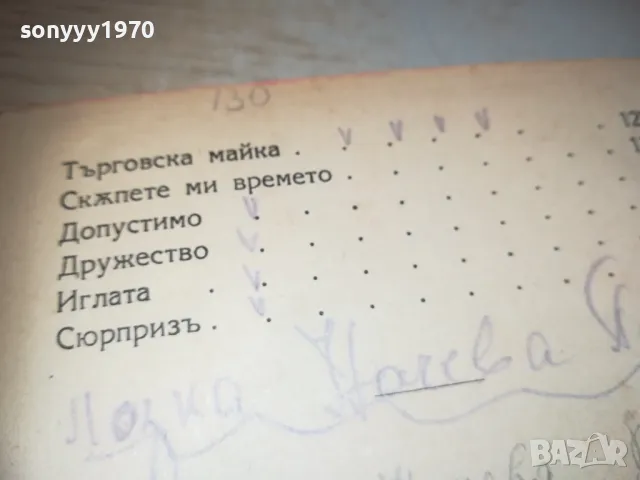 sonyyy1970
130
Търговска майка . . . . . . . . 12
Скѫпете ми времето . . . . . . . 1
Допустимо . . . . . . . . .
Дружество . . . . . . . . .
Иглата . . . . . . . . .
Сюрпризъ . . . . . . . .
Начева
BAZAR